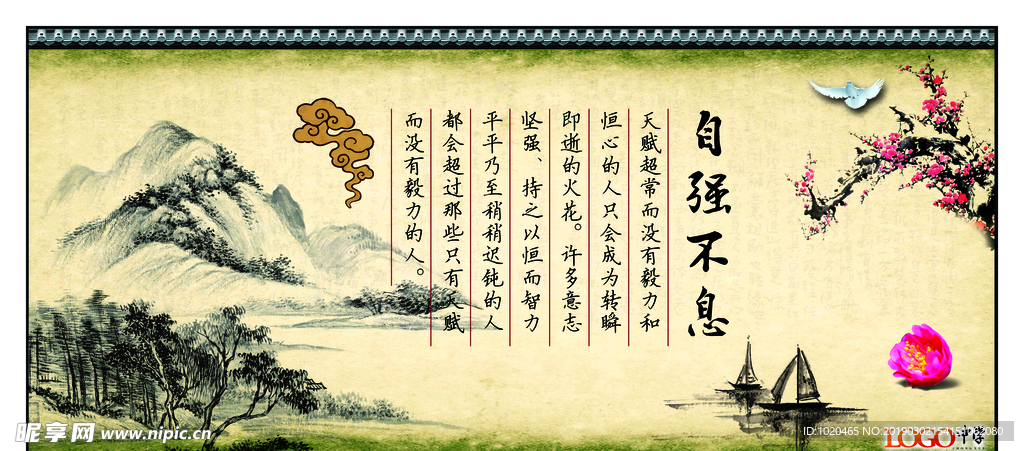 自强不息
天赋超常而没有毅力和
恒心的人只会成为转瞬
即逝的火花。许多意志
坚强、持之以恒而智力
平平乃至稍稍迟钝的人
都会超过那些只有天赋
而没有毅力的人。
昵享网 www.nipic.cn
ID:1020465 NO:20190302154151082080
LOGO 中学